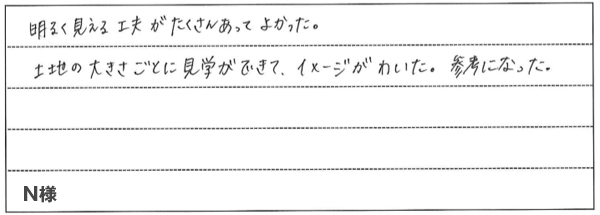 明るく見える工夫がたくさんあってよかった。
土地の大きさごとに見学ができて、イメージがわいた。参考になった。
N様